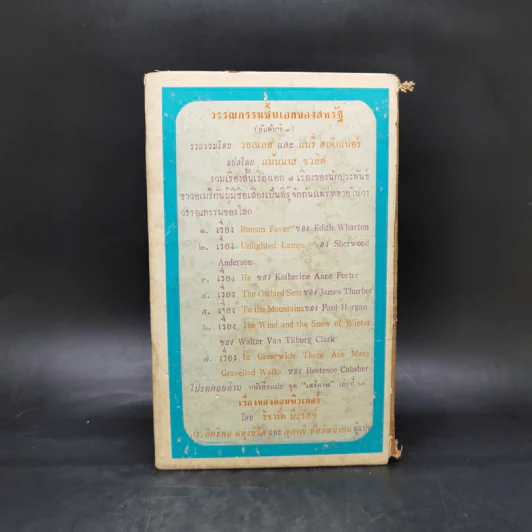 วรรณกรรมชั้นเอกของสหรัฐ
(อันดับที่ ๓)
รวบรวมโดย วอลเลส และ แมรี่ สเต็กเนอร์
แปลโดย แม้นมาส ชวลิต
รวมเรื่องสั้นเรื่องเอก ๗ เรื่องของนักประพันธ์
ชาวอเมริกันผู้มีชื่อเสียงเป็นที่รู้จักกันแพร่หลายในวง
วรรณกรรมของโลก
๑. เรื่อง Roman Fever ของ Edith Wharton
๒. เรื่อง Unlighted Lamps ของ Sherwood
Anderson
๓. เรื่อง He ของ Katherine Anne Porter
๔. เรื่อง The Catbird Seat ของ James Thurber
๕. เรื่อง To the Mountains ของ Paul Horgan
๖. เรื่อง The Wind and the Snow of Winter
ของ Walter Van Tilburg Clark
๗. เรื่อง In Greenwich There Are Many
Gravelled Walks ของ Hortense Calisher
โปรดคอยอ่าน หนังสือแปล ชุด "เสรีภาพ" เล่มที่
เรื่องของคอมพิวเตอร์
โดย
และ